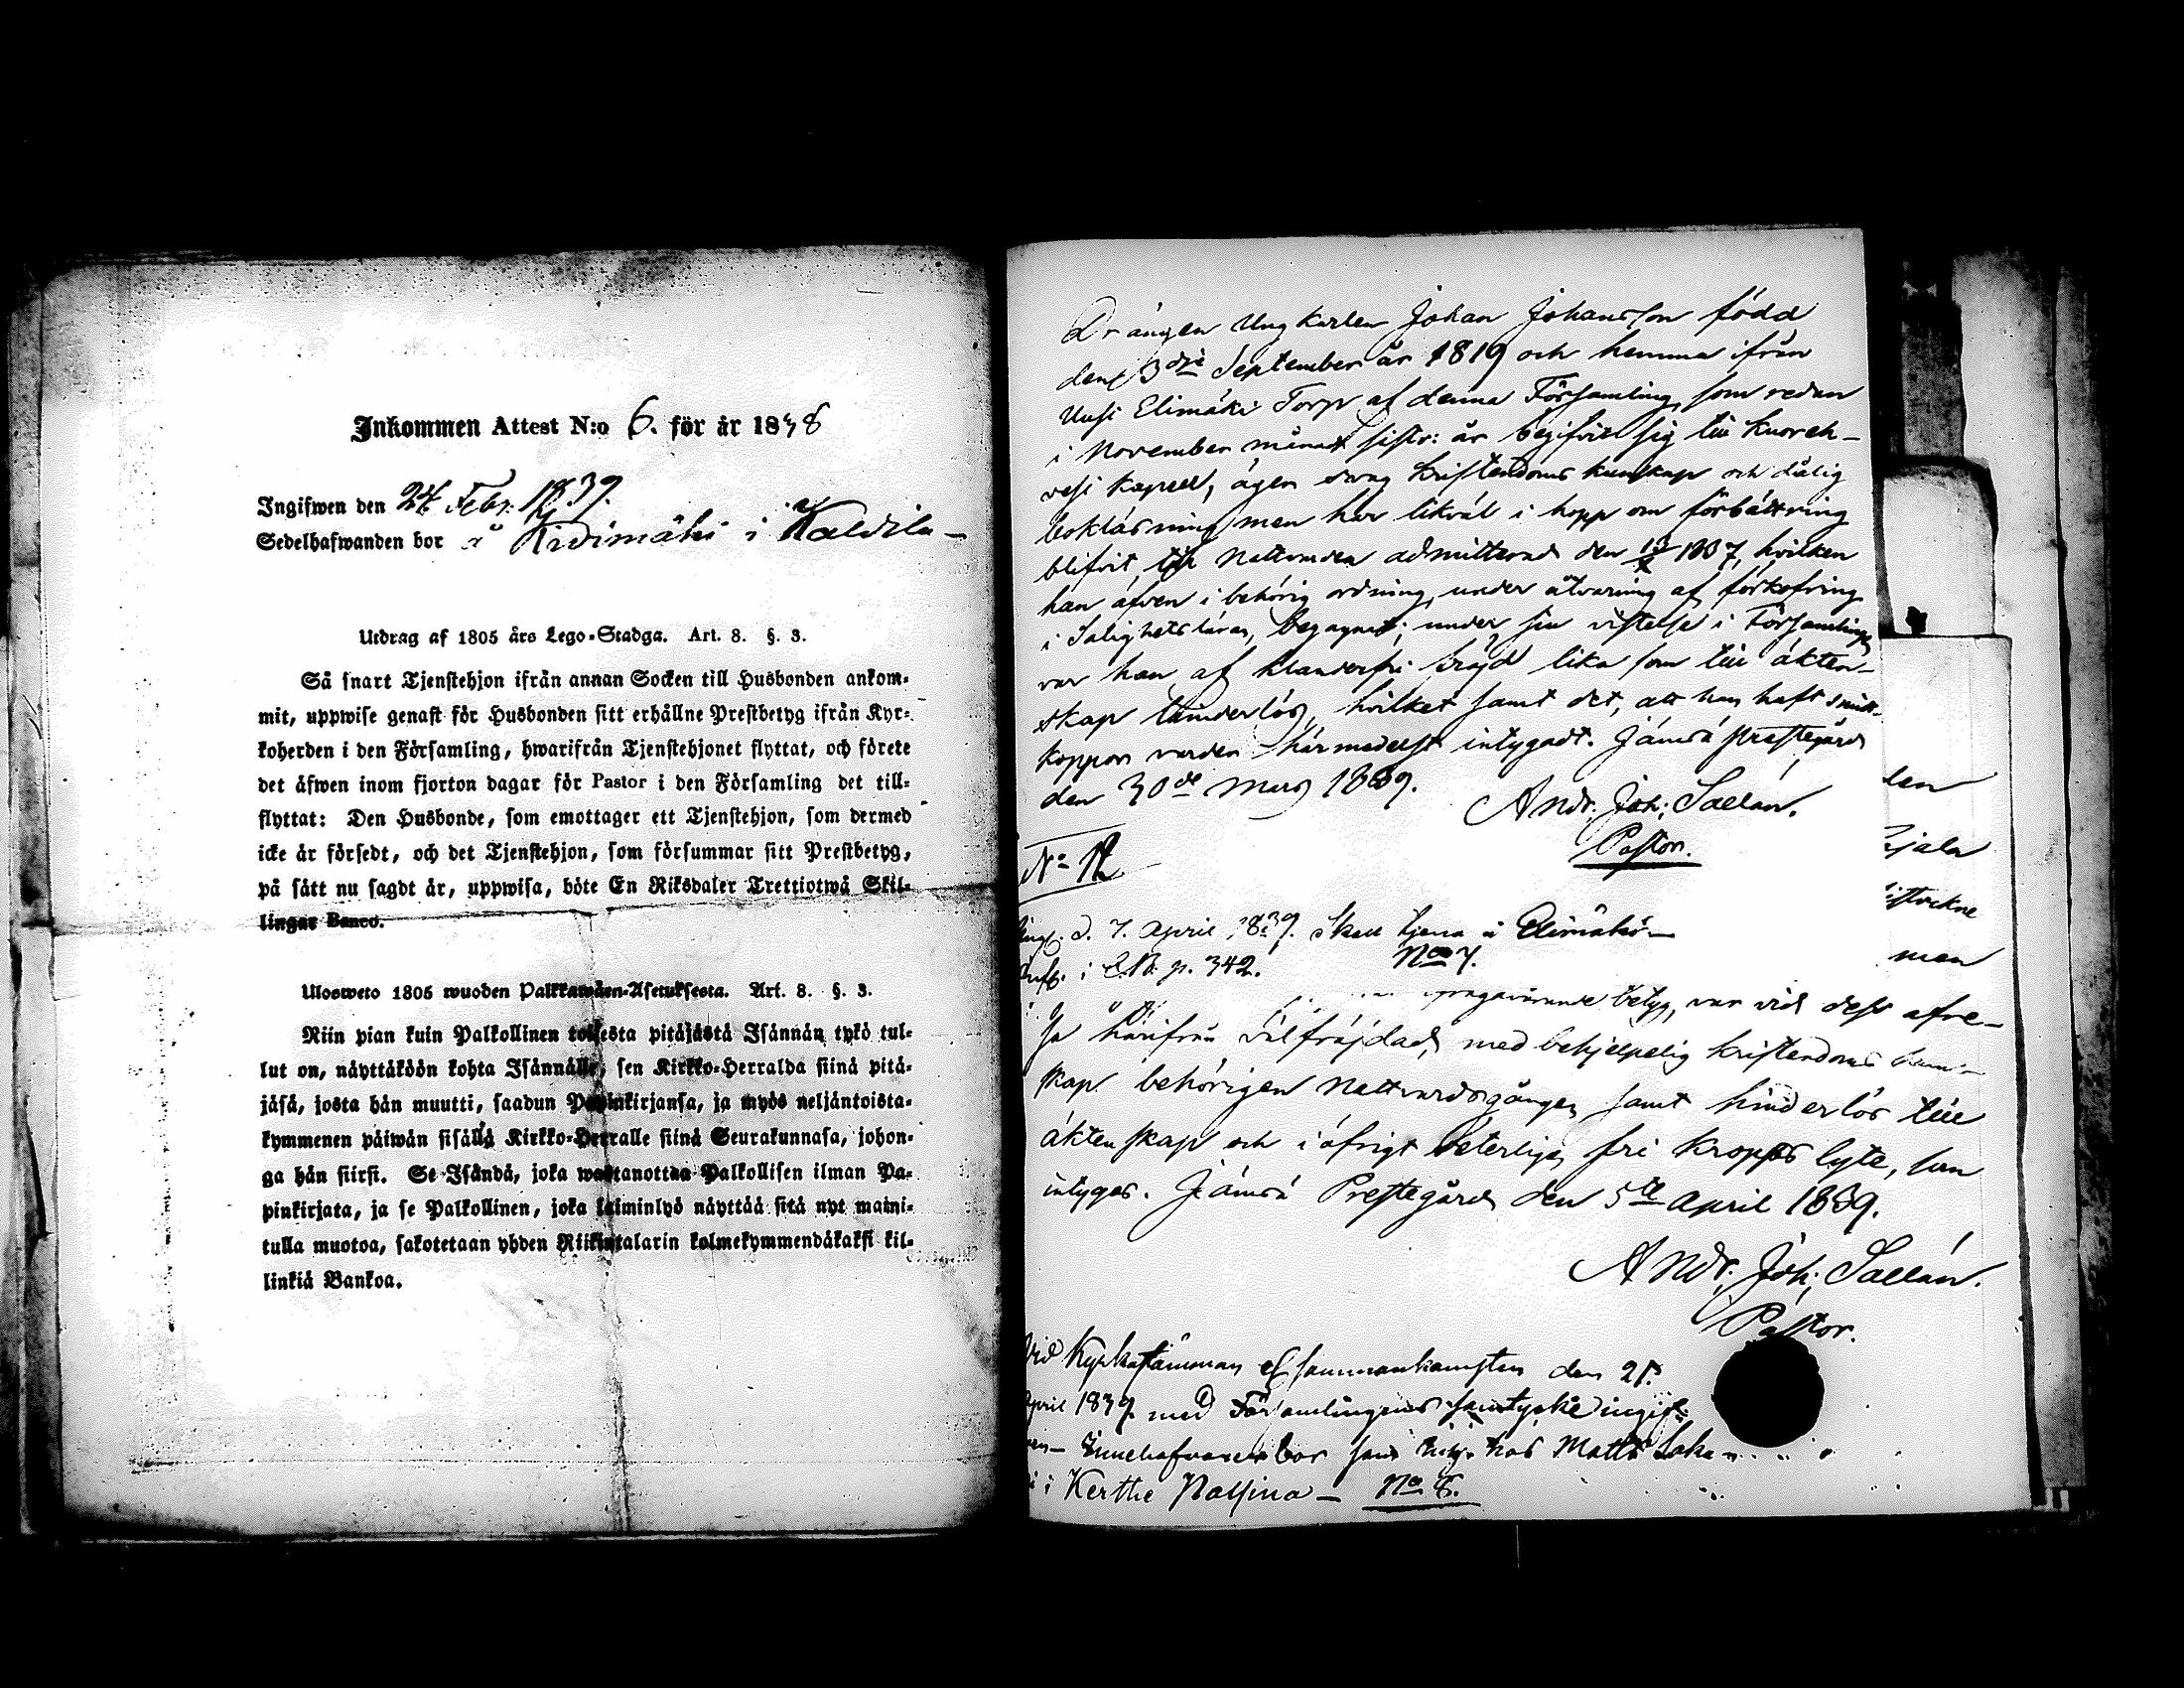 Inkommen Attest N:o 6. för år 1838
Ingifwen den 24 Febr. 1839.
Sedelhafwanden bor å Kidimäki i Kaldila –
Utdrag af 1805 års Lego-Stadga. Art. 8. §. 3.
Så snart Tjenstehjon ifrån annan Socken till Husbonden ankom-
mit, uppwise genast för Husbonden sitt erhållne Prestbetyg ifrån Kyr-
koherden i den Församling, hwarifrån Tjenstehjonet flyttat, och förete
det äfwen inom fjorton dagar för Pastor i den Församling det till-
flyttat: Den Husbonde, som emottager ett Tjenstehjon, som dermed
icke är försedt, och det Tjenstehjon, som försummar sitt Prestbetyg,
på sätt nu sagdt är, uppwisa, böte En Riksdaler Trettiotwå Skil-
lingar Banco.
Ulosweto 1805 wuoden Palkkawäen-Asetuksesta. Art. 8. §. 3.
Niin pian kuin Palkollinen toisesta pitäjästä Isännän tykö tul-
lut on, näyttäköön kohta Isännälle, sen Kirkko-Herralda siinä pitä-
jäsä, josta hän muutti, saadun Papinkirjansa, ja myös neljäntoista-
kymmenen päiwän sisällä Kirkko-Herralle siinä Seurakunnasa, johon-
ga hän siirsi. Se Isändä, joka wastanottaa Palkollisen ilman Pa-
pinkirjata, ja se Palkollinen, joka laiminlyö näyttää sitä nyt maini-
tulla muotoa, sakotetaan yhden Riikintalarin kolmekymmendäkaksi kil-
linkiä Bankoa.
Drängen Ungkarlen Johan Johansson född
den 3die September år 1819 och hemma ifrån
Uusi Elimäki Torp af denna Församling, som redan
i November månad sistl: år begifvit sig till Kuoreh-
vesi Kapell, äger svag Kristendoms kunskap och dålig
bokläsning men har likväl i hopp om förbättring
blifvit till Nattvarden admitterad den 1837, hvilken
han äfven i behörig ordning, under åtvarning af förkofring
i Salighetsläran, begagnat; under sin vistelse i Församlingen
var han af klanderfri frejd lika som till äkten-
skap hinderlös, hvilket samt det, att han haft smitt-
koppor varder härmedelst intygadt. Jämsä Prästegård
den 30de Mars 1839.
Andr. Joh: Sallén.
Pastor.
No 12
Ingf. d. 7. April 1839. Skall tjena å Elimäki –
No 7.
i C.B. p. 342.
betyg, var vid dess afre-
sa härifrån välfräjdad, med behjelpelig Kristendoms kun-
skap behörigen Nattvardsgången samt hinderlös till
äktenskap och i öfrigt veterligen fri kropps lyte, som
intygas. Jämsä Prestegård den 5te April 1839.
Andr. Joh: Sallén.
Pastor.
Vid Kyrkostämman sammankomsten den 21.
April 1839 med Församlingens samtycke ingif-
ven – Innehafvaren bor hos Matts
i Kertte Nalsina – No 8.
len
men